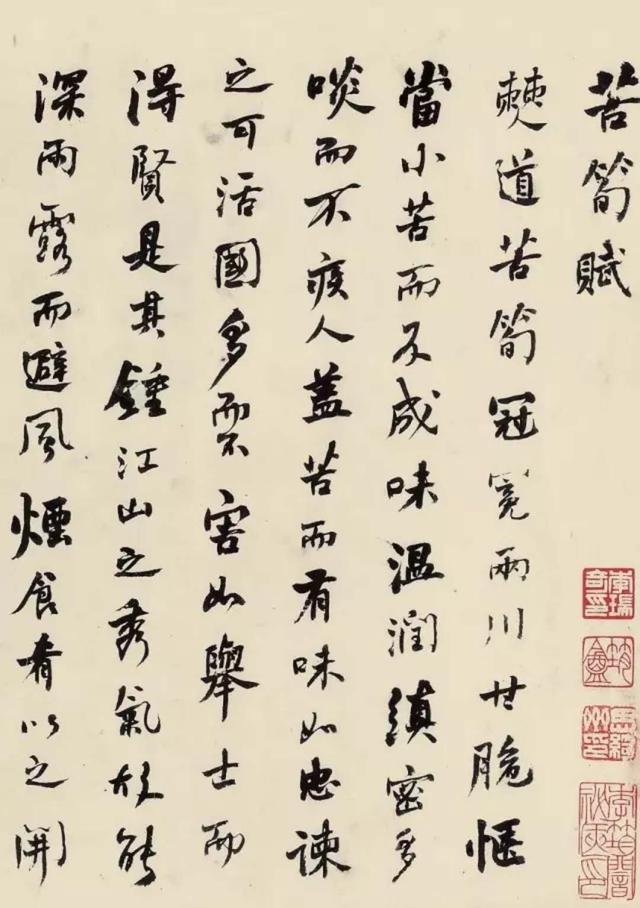 苦筍賦
僰道苦筍冠冕兩川甘脆愜
當小苦而反成味溫潤縝密多
啖而不疾人蓋苦而有味如忠諫
之可活國多而不害如舉士而
得賢是其鍾江山之秀氣故能
深雨露而避風煙食肴以之開